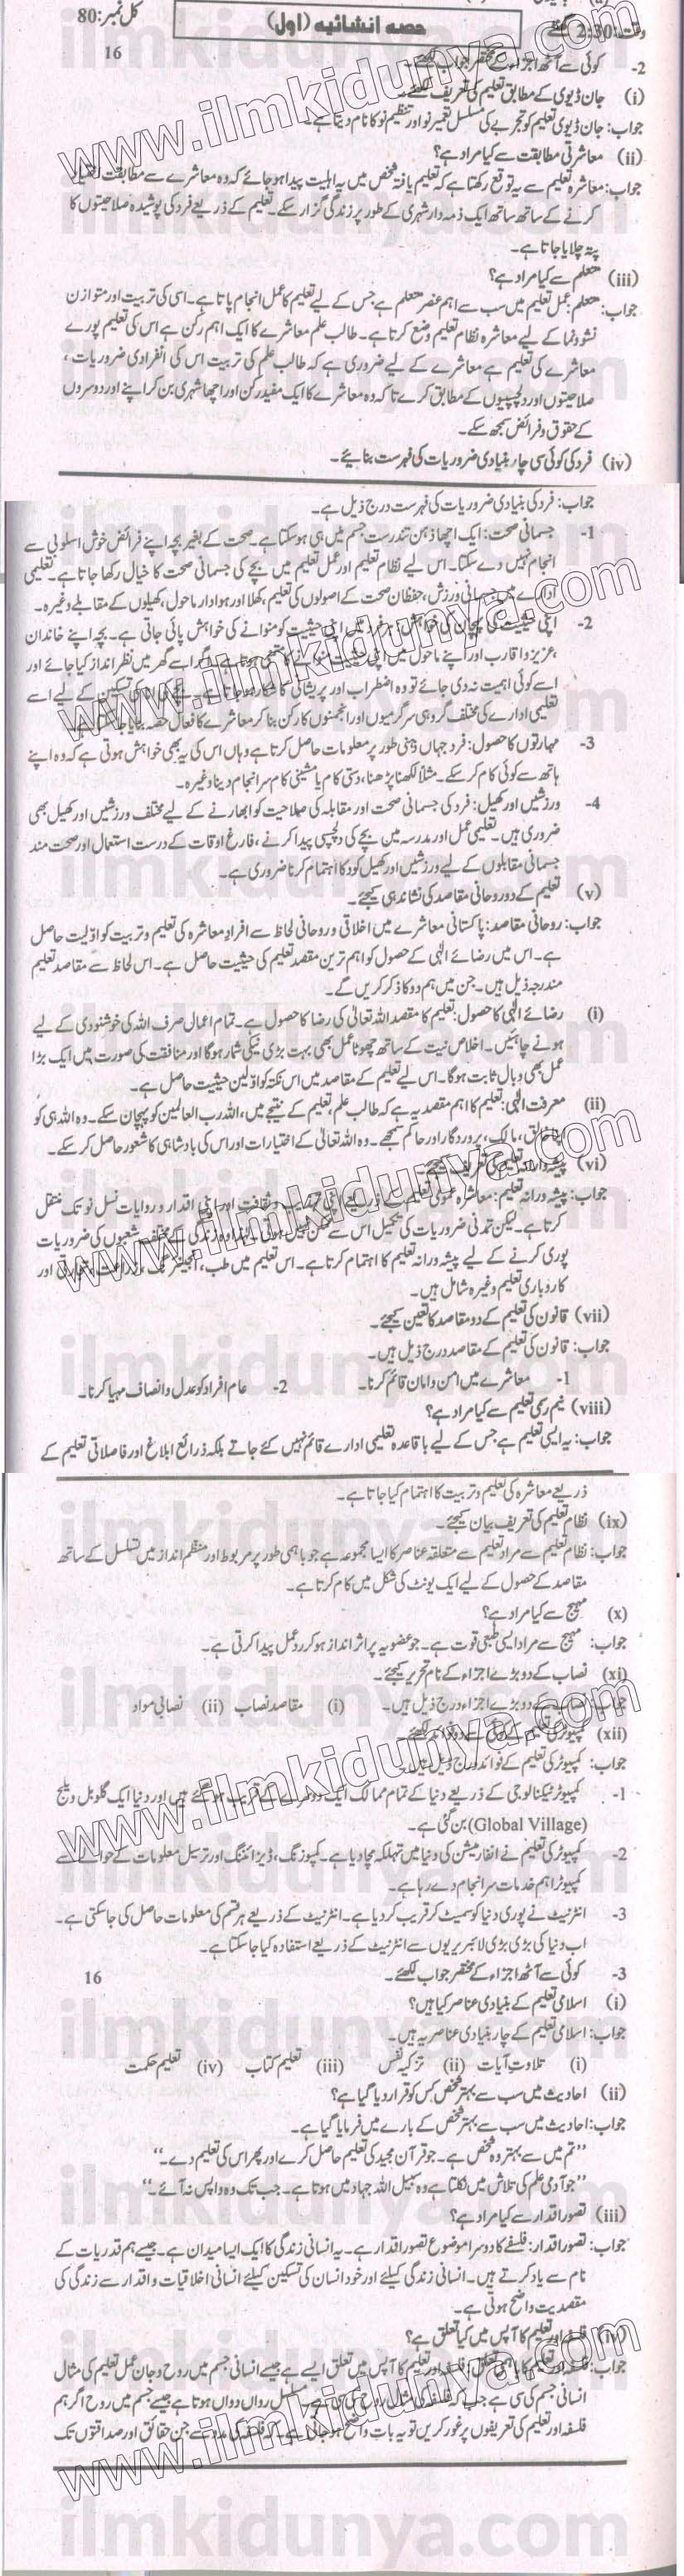 وقت: 2:30 گھنٹے
حصہ انشائیہ (اول)
کل نمبر: 80
2- کوئی سے آٹھ اجزاء کے مختصر جواب لکھئے۔ 16
(i) جان ڈیوی کے مطابق تعلیم کی تعریف لکھئے۔
جواب: جان ڈیوی تعلیم کو تجربے کی مسلسل تعمیر نو اور تنظیم نو کا نام دیتا ہے۔
(ii) معاشرتی مطابقت سے کیا مراد ہے؟
جواب: معاشرہ تعلیم سے یہ توقع رکھتا ہے کہ تعلیم یافتہ شخص میں یہ اہلیت پیدا ہو جائے کہ وہ معاشرے سے مطابقت اختیار
کرنے کے ساتھ ساتھ ایک ذمہ دار شہری کے طور پر زندگی گزار سکے۔ تعلیم کے ذریعے فرد کی پوشیدہ صلاحیتوں کا
پتہ چلایا جاتا ہے۔
(iii) متعلم سے کیا مراد ہے؟
جواب: متعلم: عمل تعلیم میں سب سے اہم عنصر متعلم ہے جس کے لیے تعلیم کا عمل انجام پاتا ہے۔ اسی کی تربیت اور متوازن
نشوونما کے لیے معاشرہ نظام تعلیم وضع کرتا ہے۔ طالب علم معاشرے کا ایک اہم رکن ہے اس کی تعلیم پورے
معاشرے کی تعلیم ہے معاشرے کے لیے ضروری ہے کہ طالب علم کی تربیت اس کی انفرادی ضروریات،
صلاحیتوں اور دلچسپیوں کے مطابق کرے تاکہ وہ معاشرے کا ایک مفید رکن اور اچھا شہری بن کر اپنے اور دوسروں
کے حقوق و فرائض سمجھ سکے۔
(iv) فرد کی کوئی سی چار بنیادی ضروریات کی فہرست بنائیے۔
جواب: فرد کی بنیادی ضروریات کی فہرست درج ذیل ہے۔
1- جسمانی صحت: ایک اچھا ذہن تندرست جسم میں ہی ہو سکتا ہے۔ صحت کے بغیر بچہ اپنے فرائض خوش اسلوبی سے
انجام نہیں دے سکتا۔ اس لیے نظام تعلیم اور عمل تعلیم میں بچے کی جسمانی صحت کا خیال رکھا جاتا ہے۔ تعلیمی
ادارے میں جسمانی ورزش، حفظان صحت کے اصولوں کی تعلیم، کھلا اور ہوادار ماحول، کھیلوں کے مقابلے وغیرہ۔
2- اپنی حیثیت کی پہچان کی خواہش: ہر فرد میں اپنی حیثیت کو منوانے کی خواہش پائی جاتی ہے۔ بچہ اپنے خاندان
،عزیز و اقارب اور اپنے ماحول میں اپنی حیثیت منوانے کا متمنی ہوتا ہے۔ اگر اسے گھر میں نظر انداز کیا جائے اور
اسے کوئی اہمیت نہ دی جائے تو وہ اضطراب اور پریشانی کا شکار ہو جاتا ہے۔ تسکین کے لیے اسے
تعلیمی ادارے کی مختلف گروہی سرگرمیوں اور انجمنوں کا رکن بنا کر معاشرے کا فعال حصہ بنایا جاتا ہے۔
3- مہارتوں کا حصول: فرد جہاں ذہنی طور پر معلومات حاصل کرتا ہے وہاں اس کی یہ بھی خواہش ہوتی ہے کہ وہ اپنے
ہاتھ سے کوئی کام کر سکے۔ مثلاً لکھنا پڑھنا، دستی کام یا مشینی کام سرانجام دینا وغیرہ۔
4- ورزشیں اور کھیل: فرد کی جسمانی صحت اور مقابلہ کی صلاحیت کو ابھارنے کے لیے مختلف ورزشیں اور کھیل بھی
ضروری ہیں۔ تعلیمی عمل اور مدرسہ میں بچے کی دلچسپی پیدا کرنے، فارغ اوقات کے درست استعمال اور صحت مند
جسمانی مقابلوں کے لیے ورزشیں اور کھیل کود کا اہتمام کرنا ضروری ہے۔
(v) تعلیم کے دو روحانی مقاصد کی نشاندہی کیجئے۔
جواب: روحانی مقاصد: پاکستانی معاشرے میں اخلاقی و روحانی لحاظ سے افراد معاشرہ کی تعلیم و تربیت کو اولیت حاصل
ہے۔ اس میں رضائے الٰہی کے حصول کو اہم ترین مقصد تعلیم کی حیثیت حاصل ہے۔ اس لحاظ سے مقاصد تعلیم
مندرجہ ذیل ہیں۔ جن میں ہم دو کا ذکر کریں گے۔
(i) رضائے الٰہی کا حصول: تعلیم کا مقصد اللہ تعالیٰ کی رضا کا حصول ہے۔ تمام اعمال صرف اللہ کی خوشنودی کے لیے
ہونے چاہئیں۔ اخلاص نیت کے ساتھ چھوٹا عمل بھی بہت بڑی نیکی شمار ہوگا اور منافقت کی صورت میں ایک بڑا
عمل بھی وبال ثابت ہوگا۔ اس لیے تعلیم کے مقاصد میں اس نکتہ کو اولین حیثیت حاصل ہے۔
(ii) معرفت الٰہی: تعلیم کا اہم مقصد یہ ہے کہ طالب علم، تعلیم کے نتیجے میں، اللہ رب العالمین کو پہچان سکے۔ وہ اللہ ہی کو
اپنا خالق، مالک، پروردگار اور حاکم سمجھے۔ وہ اللہ تعالیٰ کے اختیارات اور اس کی بادشاہی کا شعور حاصل کر سکے۔
(vi) پیشہ ورانہ تعلیم کی تعریف کیجئے۔
جواب: پیشہ ورانہ تعلیم: معاشرہ عمومی تعلیم کے ذریعے اپنی تہذیب و ثقافت اور اپنی اقدار و روایات نسل نو تک منتقل
کرتا ہے۔ لیکن تمدنی ضروریات کی تکمیل اس سے ممکن نہیں ہوتی۔ لہٰذا وہ زندگی کے مختلف شعبوں کی ضروریات
پوری کرنے کے لیے پیشہ ورانہ تعلیم کا اہتمام کرتا ہے۔ اس تعلیم میں طب، انجینئرنگ، زراعت، قانون اور
کاروباری تعلیم وغیرہ شامل ہیں۔
(vii) قانون کی تعلیم کے دو مقاصد کا تعین کیجئے۔
جواب: قانون کی تعلیم کے مقاصد درج ذیل ہیں۔
1- معاشرے میں امن و امان قائم کرنا۔ 2- عام افراد کو عدل و انصاف مہیا کرنا۔
(viii) نیم رسمی تعلیم سے کیا مراد ہے؟
جواب: یہ ایسی تعلیم ہے جس کے لیے باقاعدہ تعلیمی ادارے قائم نہیں کئے جاتے بلکہ ذرائع ابلاغ اور فاصلاتی تعلیم کے
ذریعے معاشرہ کی تعلیم و تربیت کا اہتمام کیا جاتا ہے۔
(ix) نظام تعلیم کی تعریف بیان کیجئے۔
جواب: نظام تعلیم سے مراد تعلیم سے متعلقہ عناصر کا ایسا مجموعہ ہے جو باہمی طور پر مربوط اور منظم انداز میں تسلسل کے ساتھ
مقاصد کے حصول کے لیے ایک یونٹ کی شکل میں کام کرتا ہے۔
(x) مہیج سے کیا مراد ہے؟
جواب: مہیج سے مراد ایسی طبعی قوت ہے۔ جو عضویہ پر اثر انداز ہو کر ردعمل پیدا کرتی ہے۔
(xi) نصاب کے دو بڑے اجزاء کے نام تحریر کیجئے۔
جواب: نصاب کے دو بڑے اجزاء درج ذیل ہیں۔ (i) مقاصد نصاب (ii) نصابی مواد
(xii) کمپیوٹر کی تعلیم کے کوئی سے دو فوائد لکھئے۔
جواب: کمپیوٹر کی تعلیم کے فوائد درج ذیل ہیں۔
1- کمپیوٹر ٹیکنالوجی کے ذریعے دنیا کے تمام ممالک ایک دوسرے کے قریب ہو گئے ہیں اور دنیا ایک گلوبل ویلج
(Global Village) بن گئی ہے۔
2- کمپیوٹر کی تعلیم نے انفارمیشن کی دنیا میں تہلکہ مچا دیا ہے۔ کمپوزنگ، ڈیزائننگ اور ترسیل معلومات کے حوالے سے
کمپیوٹر اہم خدمات سرانجام دے رہا ہے۔
3- انٹرنیٹ نے پوری دنیا کو سمیٹ کر قریب کر دیا ہے۔ انٹرنیٹ کے ذریعے ہر قسم کی معلومات حاصل کی جا سکتی ہے۔
اب دنیا کی بڑی بڑی لائبریریوں سے انٹرنیٹ کے ذریعے استفادہ کیا جا سکتا ہے۔
3- کوئی سے آٹھ اجزاء کے مختصر جواب لکھئے۔ 16
(i) اسلامی تعلیم کے بنیادی عناصر کیا ہیں؟
جواب: اسلامی تعلیم کے چار بنیادی عناصر یہ ہیں۔
(i) تلاوت آیات (ii) تزکیہ نفس (iii) تعلیم کتاب (iv) تعلیم حکمت
(ii) احادیث میں سب سے بہتر شخص کس کو قرار دیا گیا ہے؟
جواب: احادیث میں سب سے بہتر شخص کے بارے میں فرمایا گیا ہے۔
"تم میں سے بہتر وہ شخص ہے۔ جو قرآن مجید کی تعلیم حاصل کرے اور پھر اس کی تعلیم دے۔"
"جو آدمی علم کی تلاش میں نکلتا ہے وہ سبیل اللہ جہاد میں ہوتا ہے۔ جب تک وہ واپس نہ آئے۔"
(iii) تصور اقدار سے کیا مراد ہے؟
جواب: تصور اقدار: فلسفے کا دوسرا موضوع تصور اقدار ہے۔ یہ انسانی زندگی کا ایک ایسا میدان ہے۔ جسے ہم قدریات کے
نام سے یاد کرتے ہیں۔ انسانی زندگی کیلئے اور خود انسان کی تسکین کیلئے انسانی اخلاقیات و اقدار سے زندگی کی
مقصدیت واضح ہوتی ہے۔
(iv) فلسفہ اور تعلیم کا آپس میں کیا تعلق ہے؟
جواب: فلسفہ اور تعلیم کا باہمی تعلق: فلسفہ اور تعلیم کا آپس میں تعلق ایسے ہے جیسے انسانی جسم میں روح و جان عمل تعلیم کی مثال
انسانی جسم کی سی ہے جب کہ فلسفہ کی مثال روح کی سی ہے۔ مسلسل رواں دواں ہوتا ہے جیسے جسم میں روح اگر ہم
فلسفہ اور تعلیم کی تعریفوں پر غور کریں تو یہ بات واضح ہو جاتی ہے۔ کہ فلسفہ کی مدد سے جن حقائق اور صداقتوں تک
www.ilmkidunya.com
ilmkidunya.com